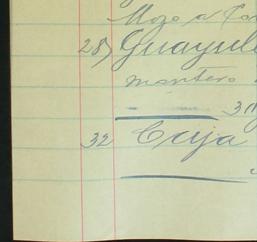 Mozo a Co
28) Guayule
montero
31
32 Caja